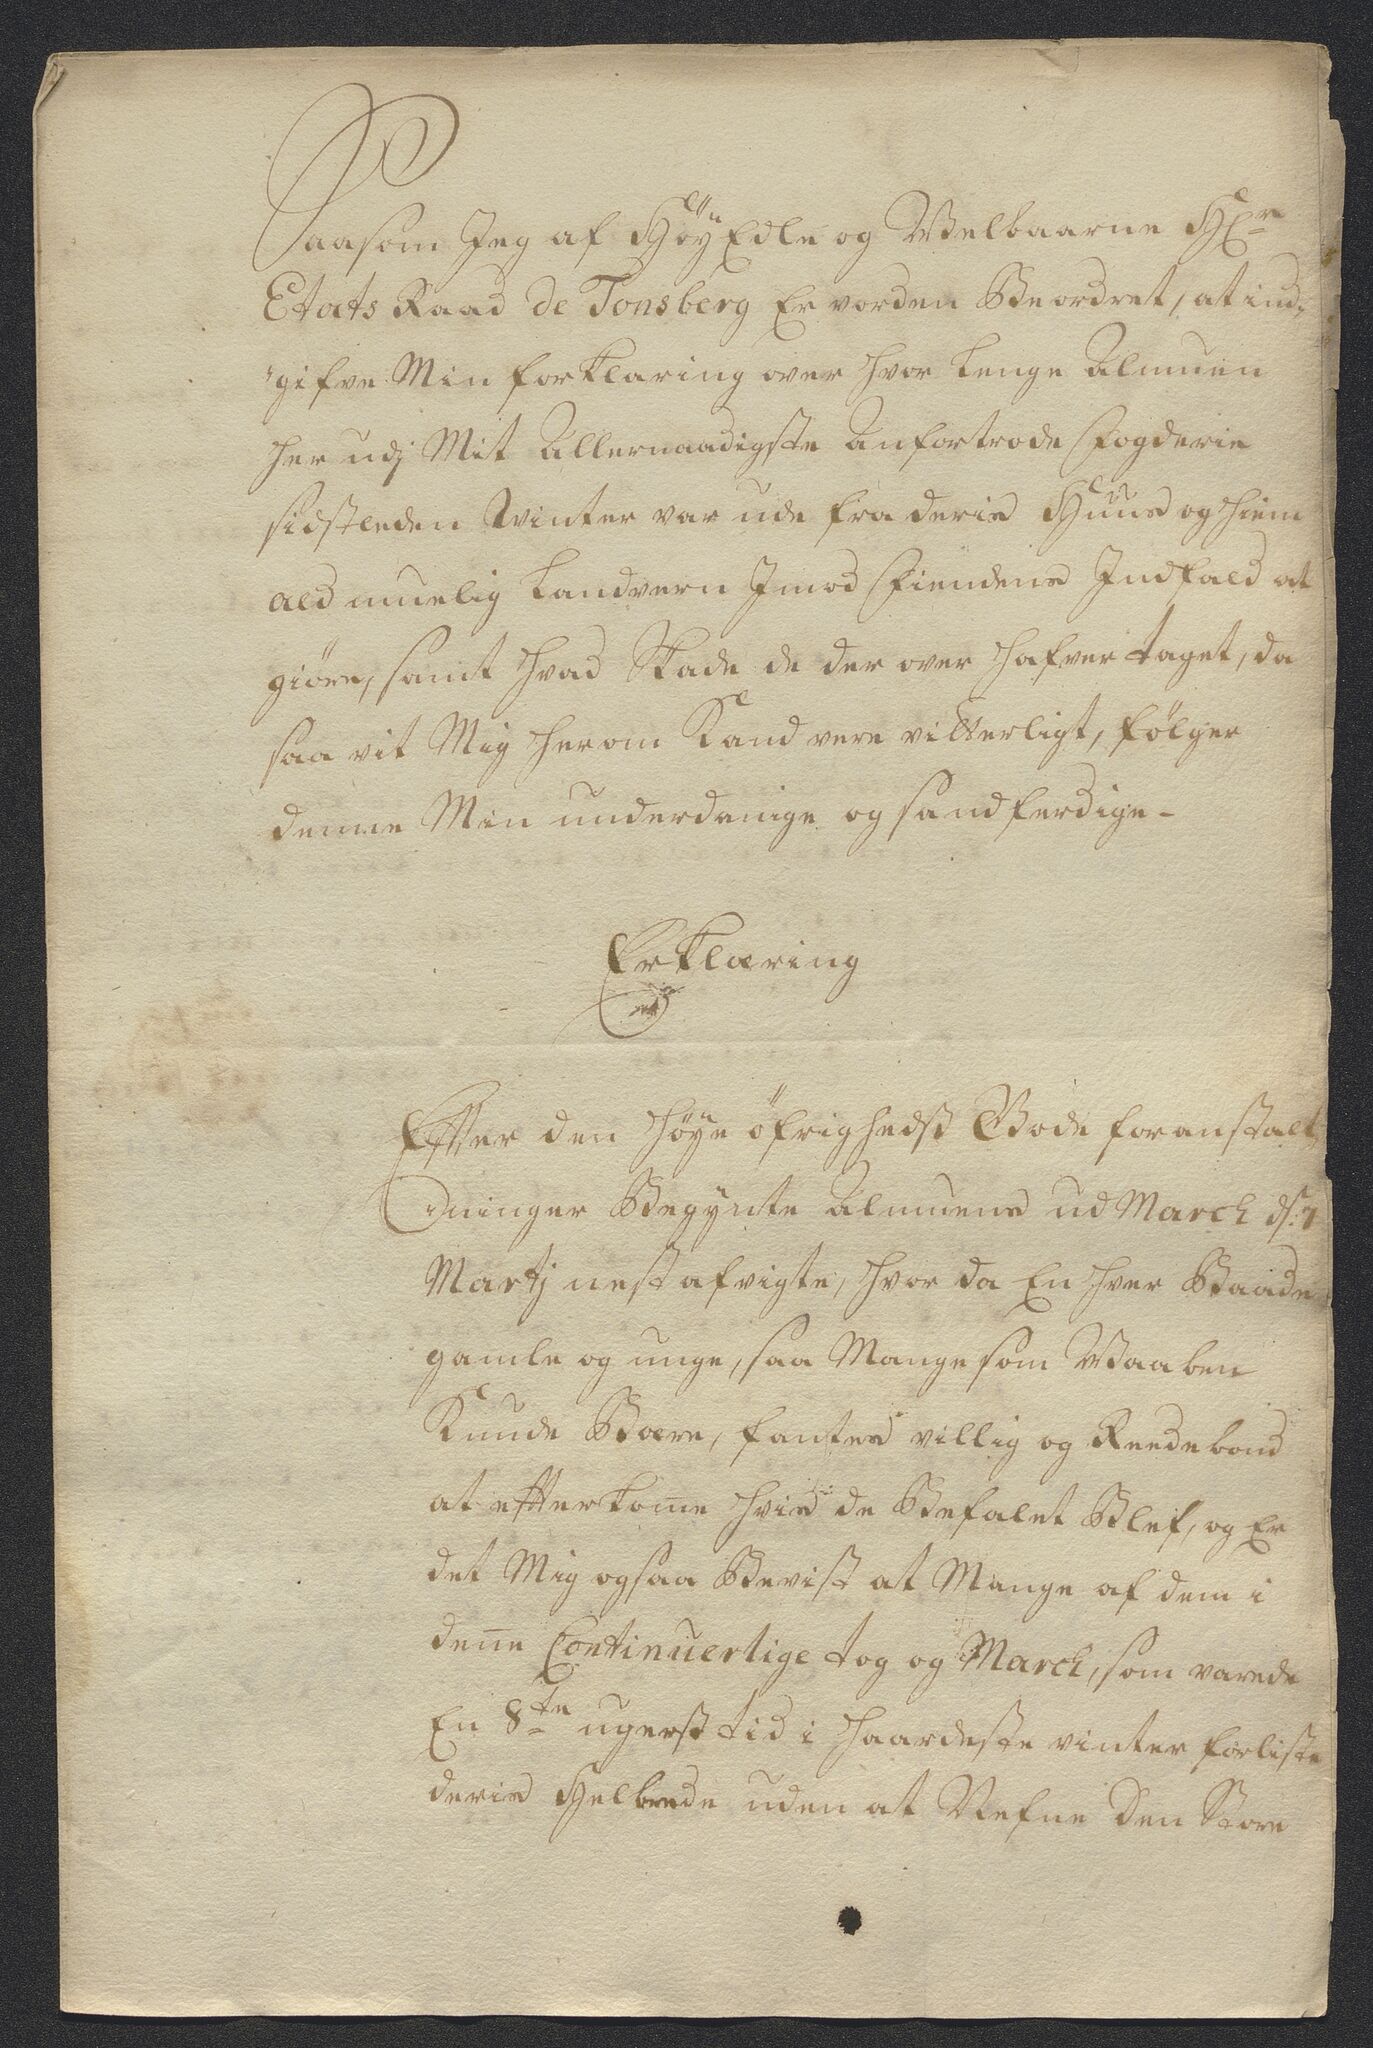 Saasom Jeg af HøyEdle og Welbaarne Hr
Etats Raad de Tonsberg Er vorden Beordret, at ind-
gifve Min forklaring over hvor lenge Almuen
her udj Mit Allernaadigste Anfortrode Fogderie
sidstleden Winter var ude fra deris Huus og hiem
ald muelig Landvern Jmod Fiendens Jndfald at
giøre, samt hvad skade de der over hafver taget, da
saa vit Mig herom Kand vere vitterligt, følger
denne Min underdanige og sandferdige-
Erklæring
Effter den høye øfrigheds Gode foranstalt-
ninger Begynte Almuens ud March ds: 7
Martj nest afvigte, hvor da En hver Baade
gamle og unge, saa Mange som Waaben
Kunde Bære, fantes villig og Reedebond
at effterkome hvis de Befalet Blef, og Er
det Mig ogsaa Bevist at Mange af dem i
dene Continuerlige tog og March, som varede
En 8te ugers tid i haardeste vinter forliste
deris Helbrede uden at Nefne den Store